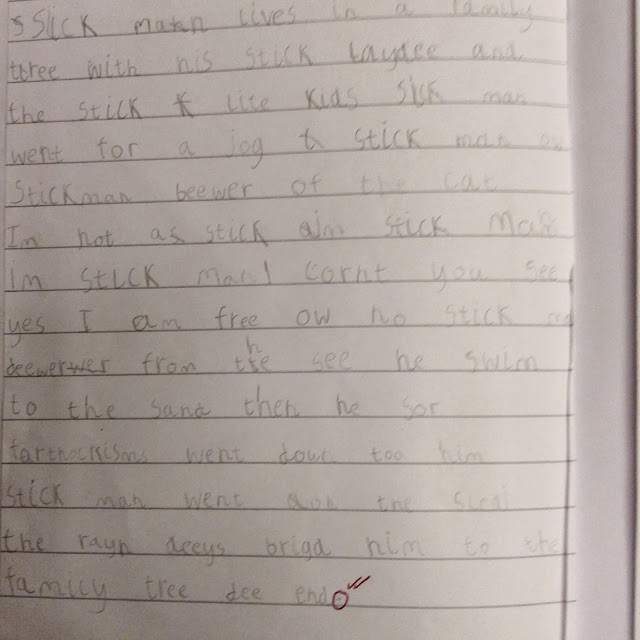 Stick mann lives in a family
tree with his stick Laydee and
the stick lite kids stick man
went for a jog stick man
Stickman beewer of the cat
Im not as stick aim stick Man
Im stick man I cornt you see
yes I am free ow no stick
beewerwer from the see he swim
to the sand then he sor
farthocrisms went down too him
stick man went on the sleai
the rayn deeys brigd him to the
family tree dee end